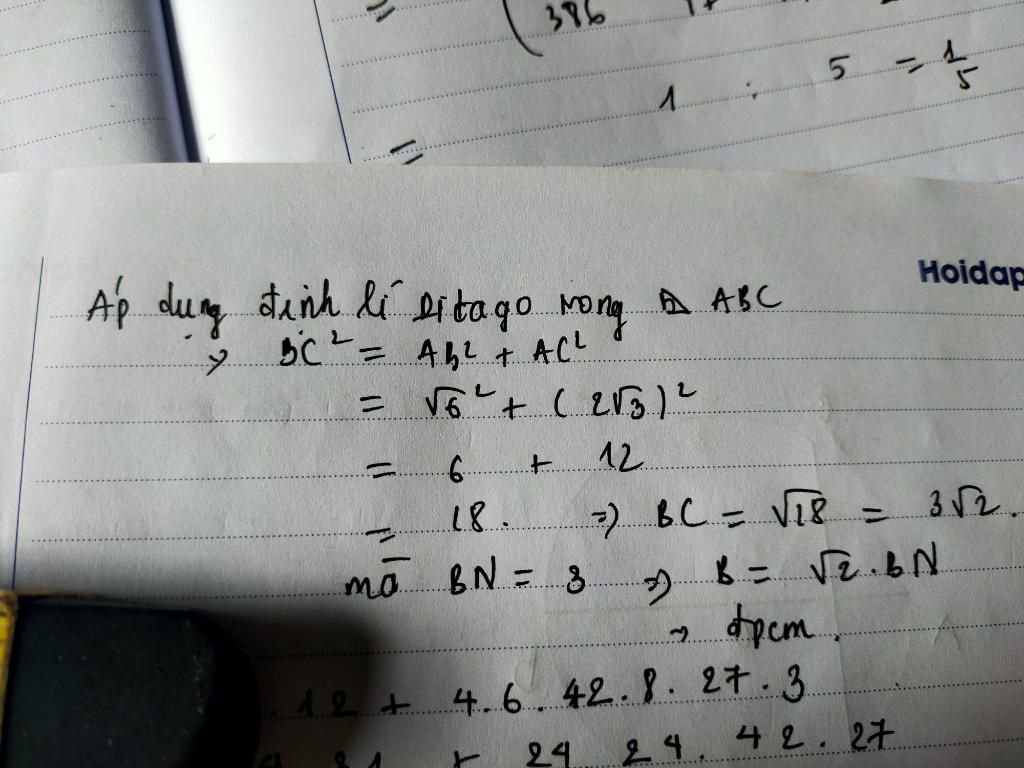 386
1 : 5 = 1/5
=
Hoidap
Áp dụng định lí Pitago trong Δ ABC
⇒ BC² = AB² + AC²
= √6² + (2√3)²
= 6 + 12
= 18. ⇒ BC = √18 = 3√2.
mà BN = 3 ⇒ B = √2.BN
→ đpcm.
.12 + 4.6.42.8.27.3
+ 24 24.42.27